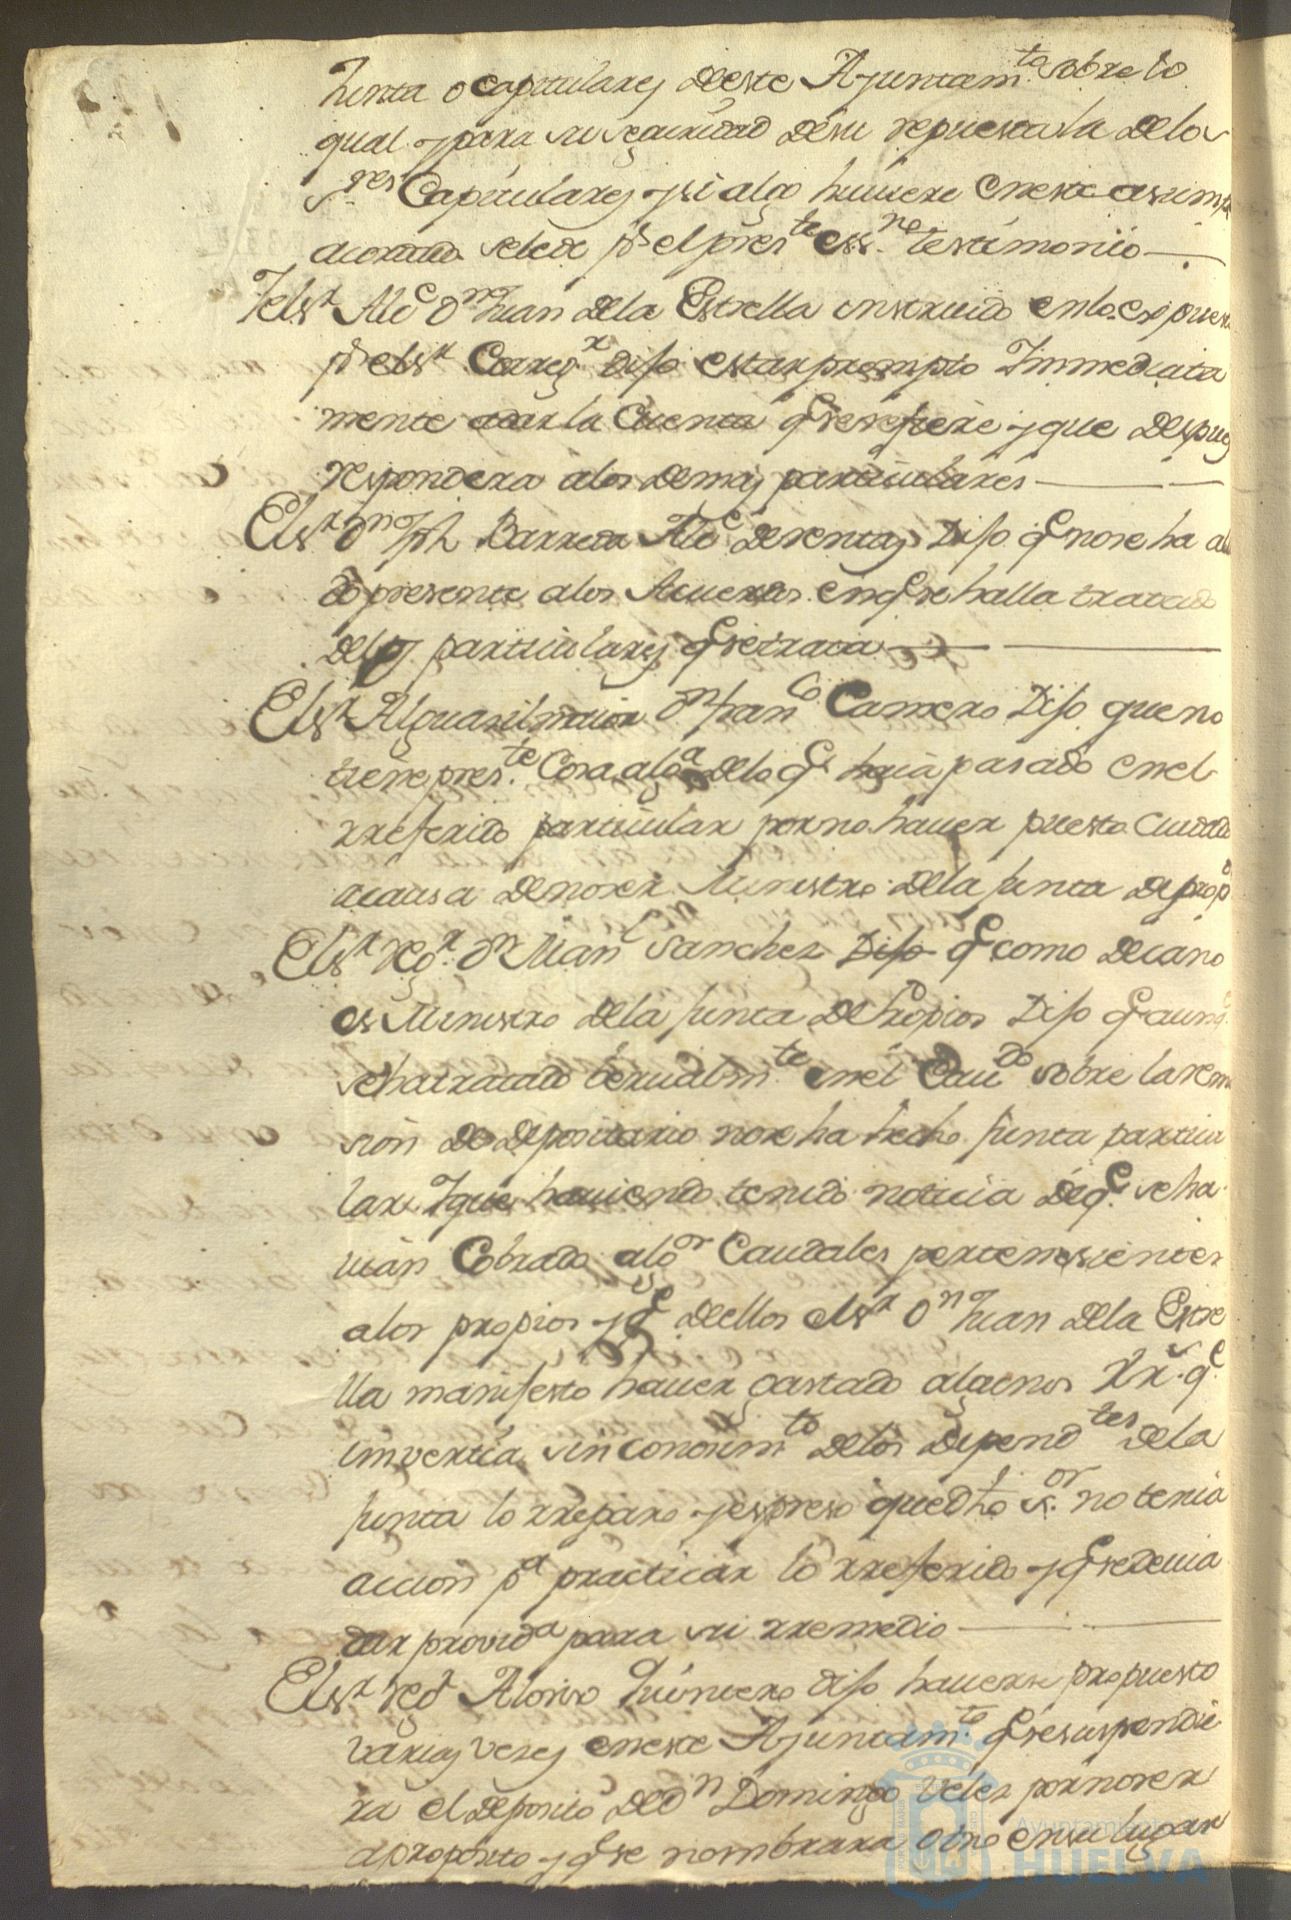 Junta o capitulares deeste Ajuntam.to sobre lo
qual y para su seguridad dèsu repuesta la delos
s.res Capitulares y si algo huuiere eneste asumpt
acordado sele de pr elpres.te ess.no testimonio
Yelsr Alc.e Dn Juan dela Estrella instruido enlo expues
pr elsr Correg.r dijo estar prompto Immediata
mente adar la Cuenta q.e serefiere y que Despues
respondera alos demas particulares
Elsr Dn Jph Barreda Alc.e derentas Dijo q.e nose ha alla
do presente alos Acuerdos enq.e se halla tratado
delos particulares q.e setrata
Elsr Alguasilmaior Dn Fran.co Camero Dijo queno
tiene pres.te Cosa alg.a delo q.e hauia pasado enel
rreferido particular por no hauer puesto Cuidado
acausa denoser Ministro dela Junta deprop.os
Elsr reg.r Dn Man.l Sanchez Dijo q.e como decano
es Ministro dela Junta dePropios Dijo q.e aunq.e
seha tratado berualm.te enel Cau.do sobre la remo
sion de depositario nose ha hecho Junta particu
lar. Yque hauiendo tenido noticia deq.e se ha
uian Cobrado alg.os Caudales pertenescientes
alos propios y q.e deellos elsr Dn Juan dela Estre
lla manifesto hauer gastado algunos Rs. q.e
imvertia sin conosim.to delos depend.tes dela
Junta lo rreparo y espreso quedho s.or no tenia
accion p.a practicar lo rreferido y q.e sedeuia
dar provid.a para su rremedio
Elsr reg.r Alonso Quintero dijo hauerse propuesto
varias veses eneste Ajuntam.to q.e sesuspendie
ra el deposito deDn Domingo Velez por noser
aproposito y q.e se nombrara otro ensu lugar
Ayuntamiento
HUELVA